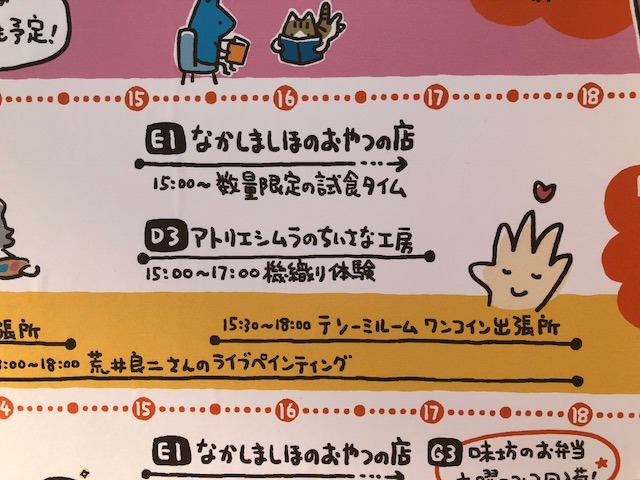 も予定!
15 16 17 18
E1 なかしましほのおやつの店
15:00〜 数量限定の試食タイム
D3 アトリエシムラのちいさな工房
15:00〜17:00 桧織り体験
張所
15:30〜18:00 テソーミルーム ワンコイン出張所
:00〜18:00 荒井良二さんのライブペインティング
15 16 17 18
E1 なかしましほのおやつの店
G3 味坊のお弁当